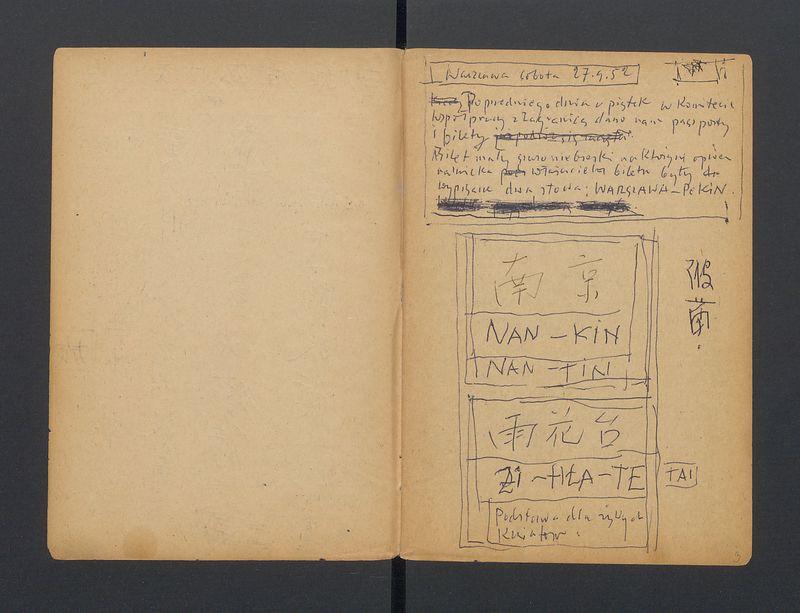 Warszawa sobota 27.9.52
Poprzedniego dnia w piątek w Komitecie
współpracy z Zagranicą dano nam paszporty
i bilety
Bilet mały szaroniebieski na którym
właściciela biletu były
wypisane dwa słowa: WARSZAWA–PEKIN.
南京
NAN–KIN
NAN–TIN
雨花台
ZI–HŁA–TE
TAI
Podstawa dla żywych
kwiatów.
3